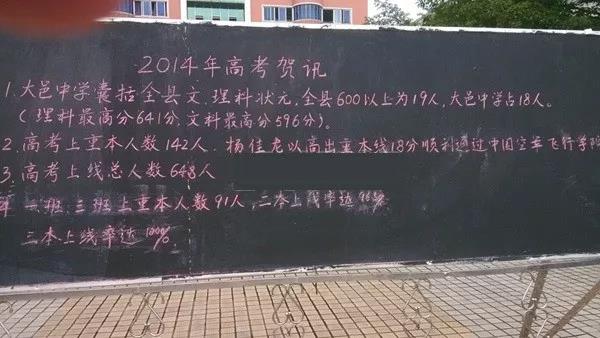 2014年高考贺讯
1.大邑中学囊括全县文.理科状元,全县600以上为19人,大邑中学占18人。
(理科最高分641分,文科最高分596分)。
2.高考上重本人数142人. 杨佳龙以高出重本线18分顺利通过中国空军飞行学院
3.高考上线总人数648人
4 一班.三班上重本人数91人,二本上线率达96%
三本上线率达100%.